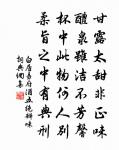 甘露太甜非正味
醴泉雖潔不芳馨
杯中此物何人別
柔旨之中有典刑
白居易府酒五絕辨味
詞典網集